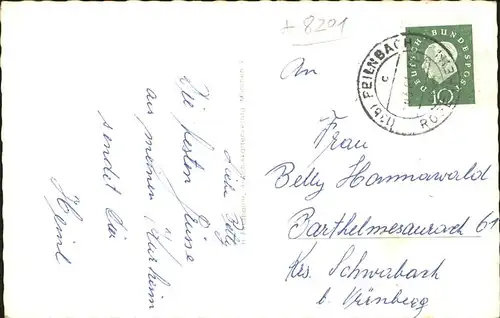 + 8201
An
Frau
Betty Hannawald
Barthelmesaurach 61
Krs. Schwabach
b. Nürnberg
DEUTSCHE BUNDESPOST
10
(13b) FEILNBACH
c
Liebe Betty
Die besten Grüsse
aus meinem Kurheim
sendet Dir
Heinl